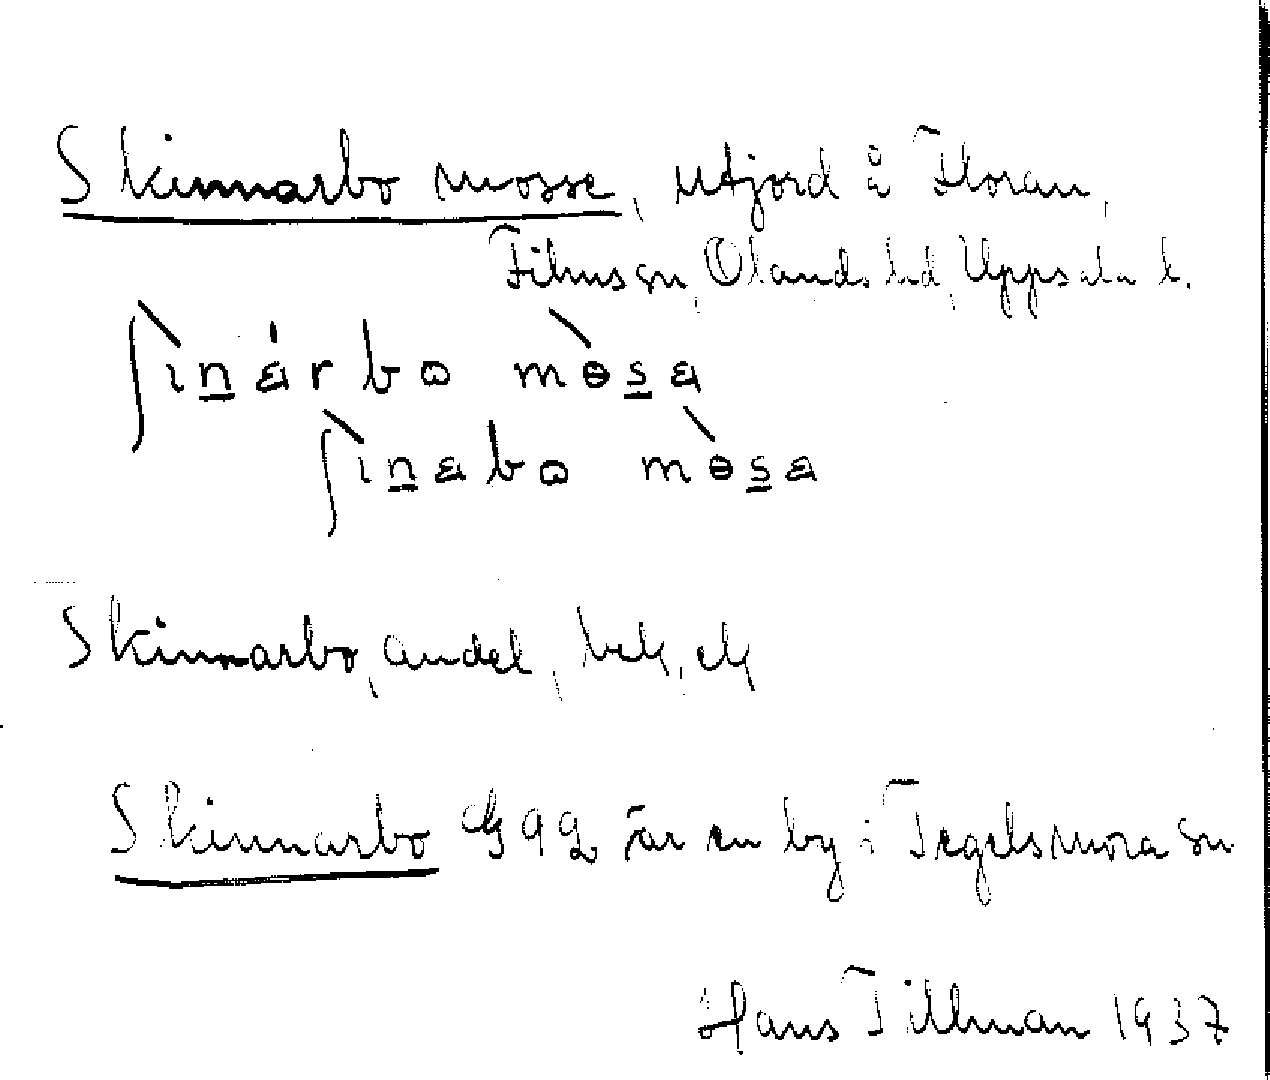 Skinnarbo mosse, utjord å Floran,
Films sn, Olands hd, Uppsala l.
ʃìnárbo mòsa
ʃìnabo mòsa
Skinnarbo, andel,
Skinnarbo 992 är en by i Tegelsmora sn
Hans Tillman 1937